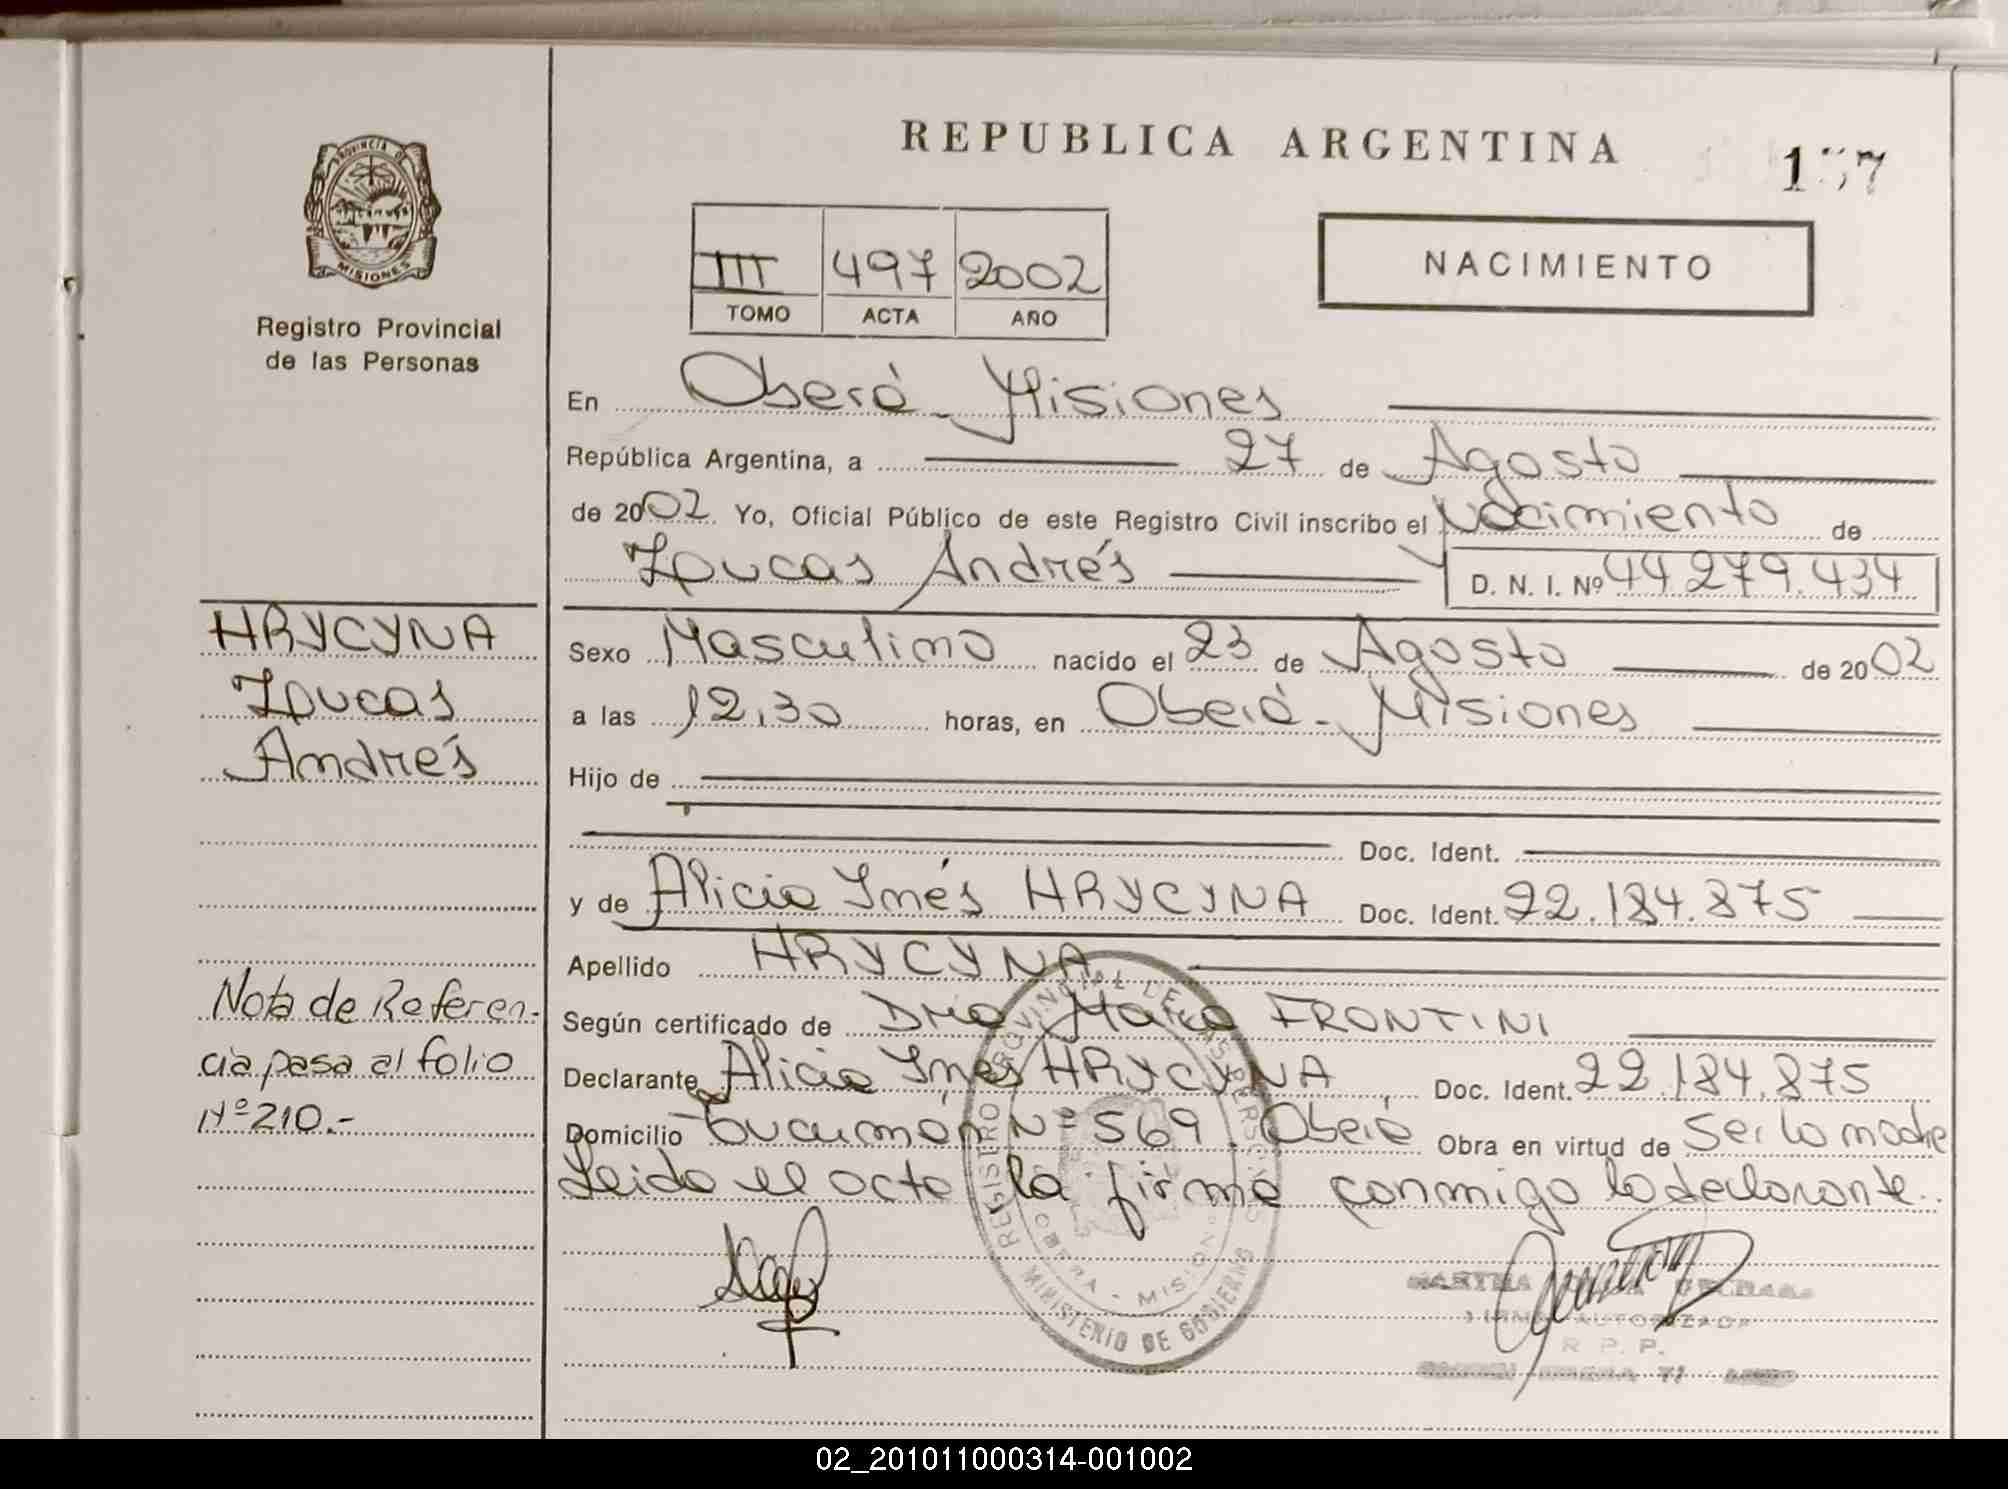 REPUBLICA ARGENTINA
PROVINCIA DE
MISIONES
Registro Provincial
de las Personas
III 497 2002
TOMO ACTA AÑO
NACIMIENTO
En Oberá - Misiones
República Argentina, a 27 de Agosto
de 2002 Yo, Oficial Público de este Registro Civil inscribo el Nacimiento de
Loucas Andrés D. N. I. Nº 44.279.434
HRYCYNA
Loucas
Andrés
Sexo Masculino nacido el 23 de Agosto de 2002
a las 12,30 horas, en Oberá - Misiones
Hijo de
Doc. Ident.
y de Alicia Inés HRYCYNA Doc. Ident. 22.184.875
Apellido HRYCYNA
Nota de Referen-
cia pasa al folio
Nº 210.-
Según certificado de Dra FRONTINI
Declarante Alicia Inés HRYCYNA Doc. Ident. 22.184.875
Domicilio Tucumán Nº 569. Oberá Obra en virtud de Ser la madre
Leida el acta la firma conmigo la declarante.
REGISTRO PROVINCIAL DE LAS PERSONAS
OBERA - MISIONES
MINISTERIO DE GOBIERNO
FIRMA AUTORIZADA
R. P. P.
02_201011000314-001002